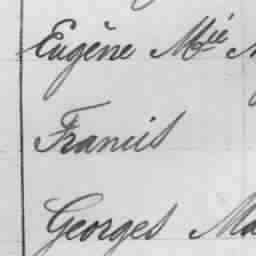 Eugène Mie
Francis
Georges Ma